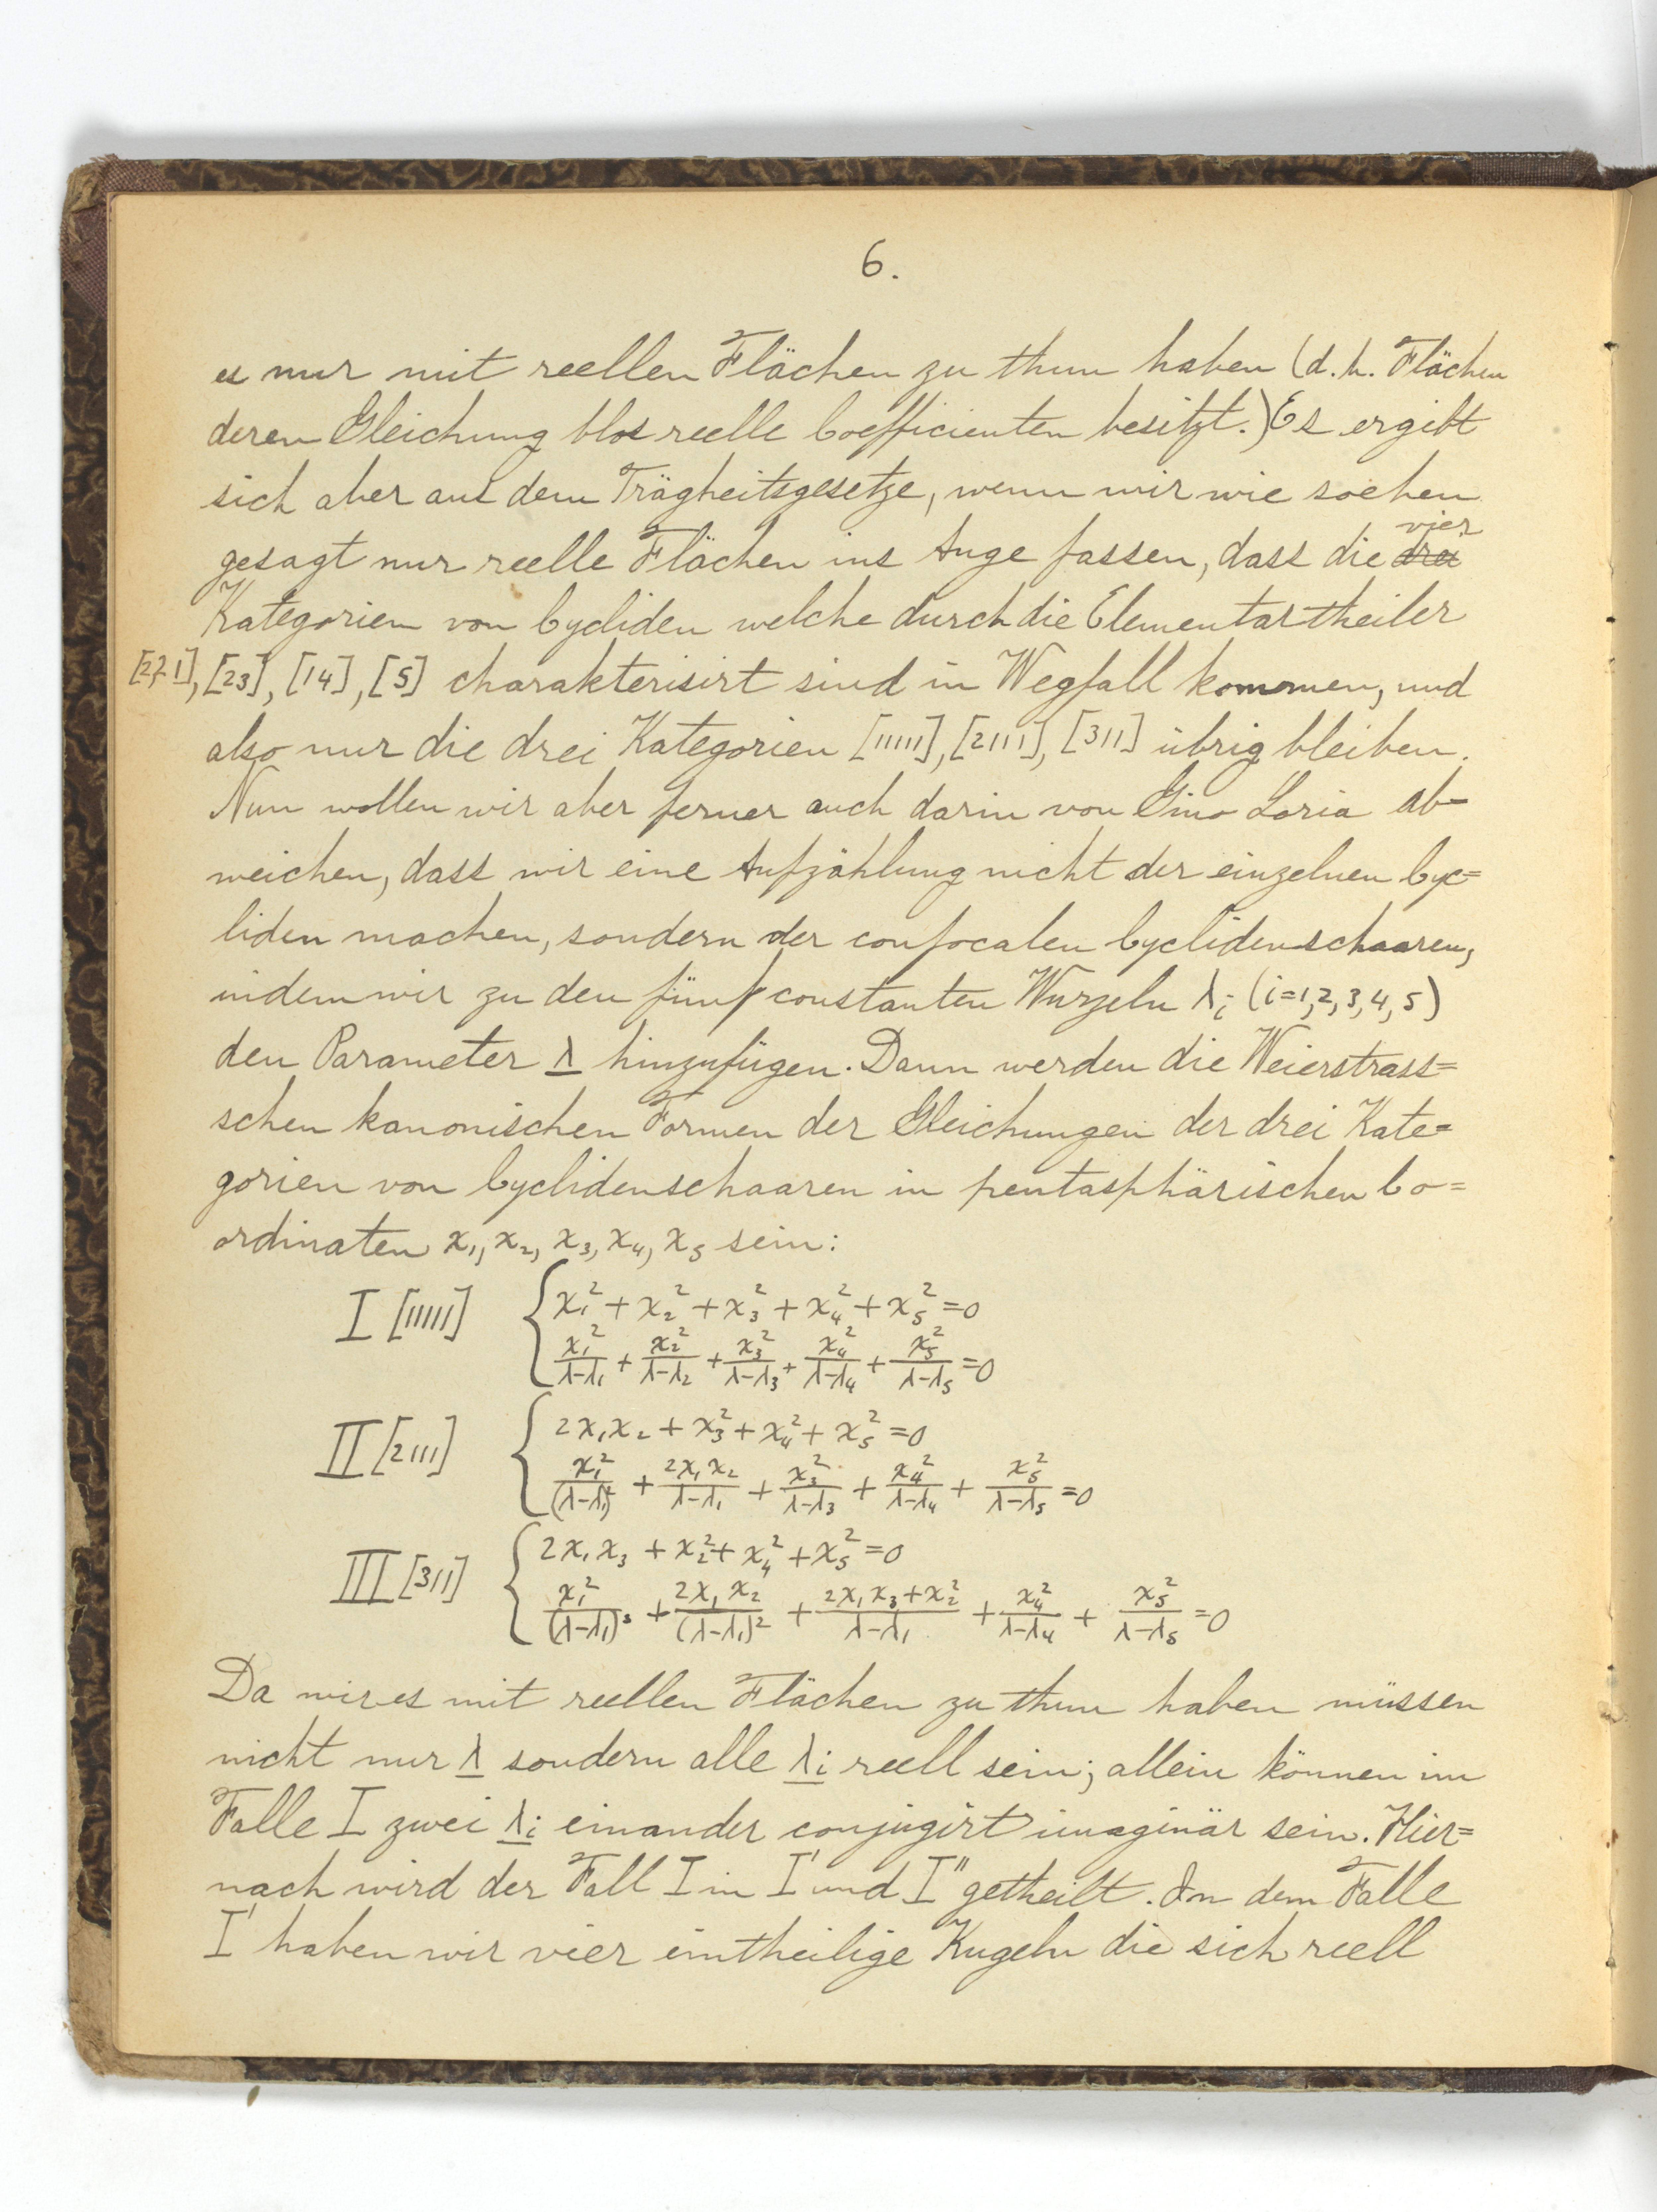 6.
es nur mit reellen Flächen zu thun haben (d.h. Flächen
deren Gleichung blos reelle Coefficienten besitzt.) Es ergibt
sich aber aus dem Trägheitsgesetze, wenn wir wie soeben
gesagt nur reelle Flächen ins Auge fassen, dass die drei vier
Kategorien von Cycliden welche durch die Elementartheiler
[221], [23], [14], [5] charakterisirt sind in Wegfall kommen, und
also nur die drei Kategorien [11111], [2111], [311] übrig bleiben.
Nun wollen wir aber ferner auch darin von Gino Loria ab=
weichen, dass wir eine Aufzählung nicht der einzelnen Cyc=
liden machen, sondern der confocalen Cyclidenschaaren,
indem wir zu den fünf constanten Wurzeln λᵢ (i=1,2,3,4,5)
den Parameter λ hinzufügen. Dann werden die Weierstrass=
schen kanonischen Formen der Gleichungen der drei Kate=
gorien von Cyclidenschaaren in pentasphärischen Co=
ordinaten x₁, x₂, x₃, x₄, x₅ sein:
I [11111] { x₁² + x₂² + x₃² + x₄² + x₅² = 0
x₁²/(λ-λ₁) + x₂²/(λ-λ₂) + x₃²/(λ-λ₃) + x₄²/(λ-λ₄) + x₅²/(λ-λ₅) = 0
II [2111] { 2x₁x₂ + x₃² + x₄² + x₅² = 0
x₁²/(λ-λ₁)² + 2x₁x₂/(λ-λ₁) + x₃²/(λ-λ₃) + x₄²/(λ-λ₄) + x₅²/(λ-λ₅) = 0
III [311] { 2x₁x₃ + x₂² + x₄² + x₅² = 0
x₁²/(λ-λ₁)³ + 2x₁x₂/(λ-λ₁)² + (2x₁x₃ + x₂²)/(λ-λ₁) + x₄²/(λ-λ₄) + x₅²/(λ-λ₅) = 0
Da wir es mit reellen Flächen zu thun haben müssen
nicht nur λ sondern alle λᵢ reell sein; allein können im
Falle I zwei λᵢ einander conjugirt imaginär sein. Hier=
nach wird der Fall I in I' und I'' getheilt. In dem Falle
I' haben wir vier eintheilige Kugeln die sich reell